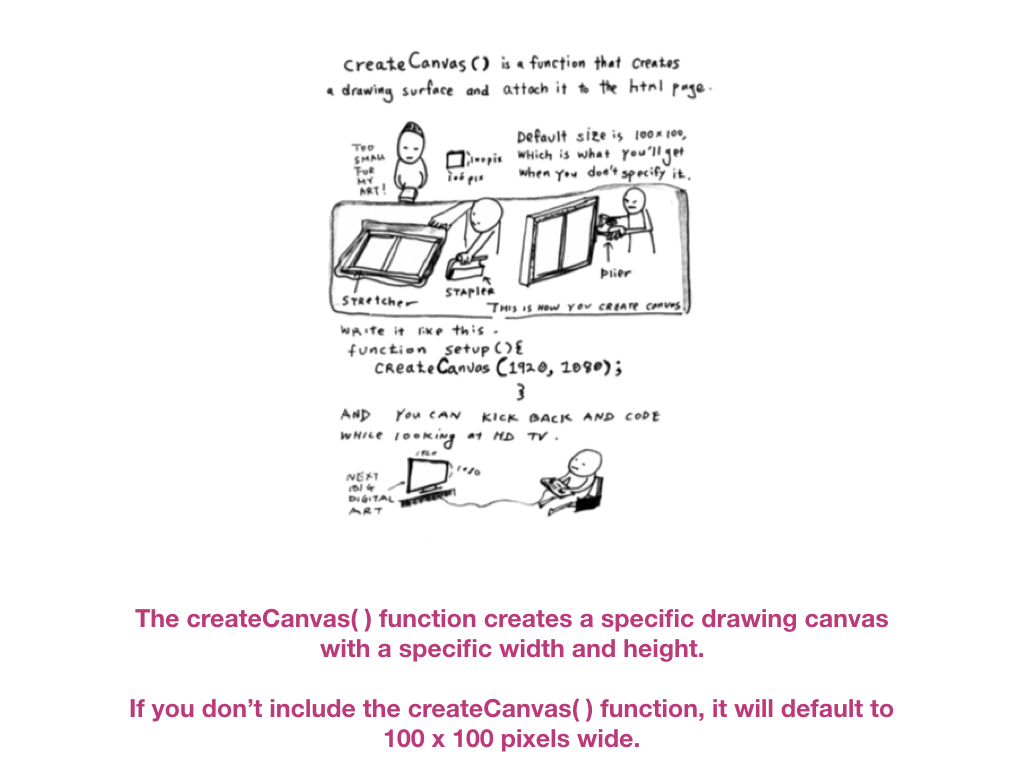 createCanvas() is a function that creates
a drawing surface and attach it to the html page.
TOO
SMALL
FOR
MY
ART!
100pix
100 pix
Default size is 100x100,
which is what you'll get
when you don't specify it.
STRetcher
STAPleR
Plier
THIS IS HOW YOU CREATE CANVAS.
WRITE it like this.
function setup(){
CReateCanvas (1920, 1080);
}
AND YOU CAN KICK BACK AND CODE
WHILE looking at HD TV.
1920
1080
NEXT
BIG
DIGITAL
ART
The createCanvas( ) function creates a specific drawing canvas
with a specific width and height.
If you don’t include the createCanvas( ) function, it will default to
100 x 100 pixels wide.